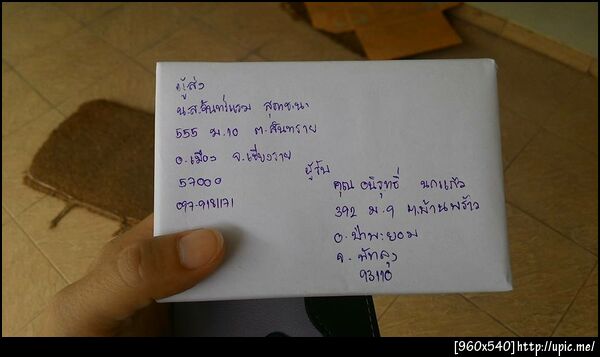 ผู้ส่ง
น.ส.จันทร์แรม
555 ม.10 ต.สันทราย
อ.เมือง จ.เชียงราย
57000
097-9181171
ผู้รับ
คุณ อนิรุทธิ์ นกแก้ว
392 ม.9 ต.บ้านพร้าว
อ.ป่าพะยอม
จ.พัทลุง
93110
[960x540]http://upic.me/